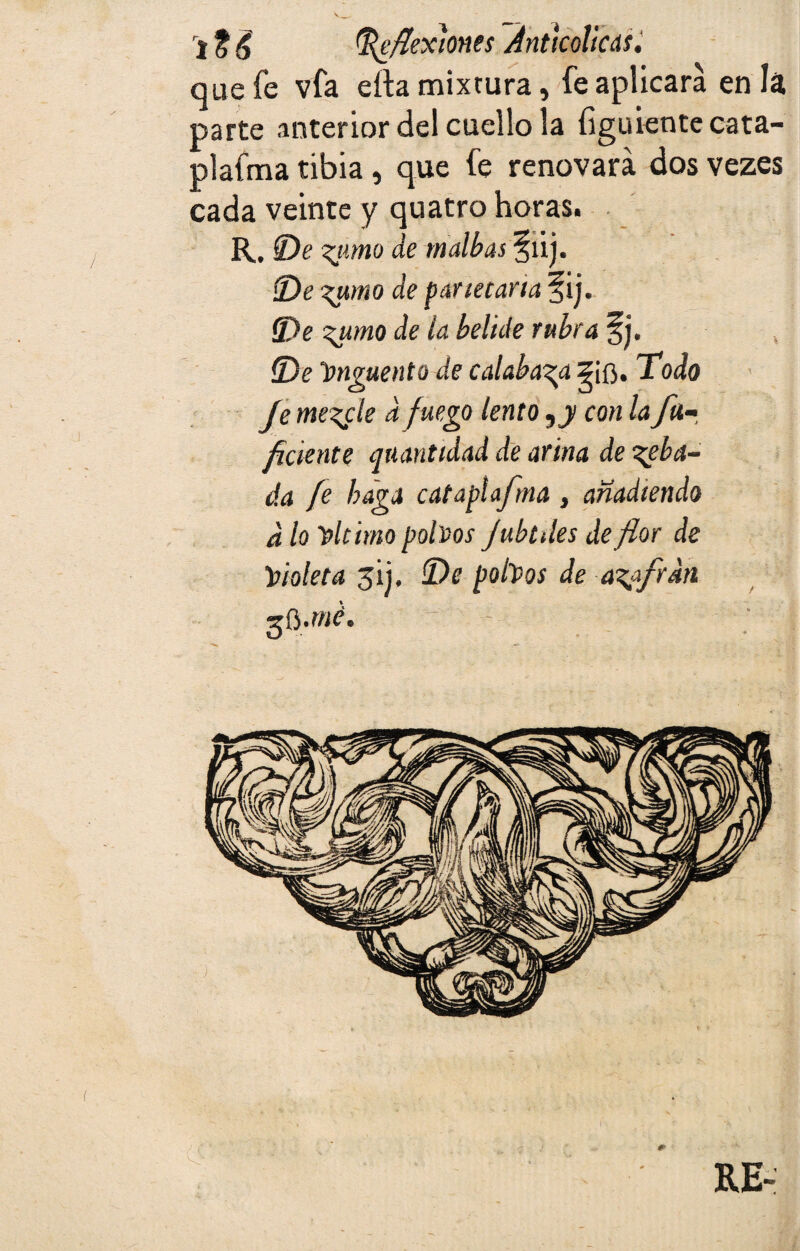 186 Reflexiones Anticolicas.
que ſe vſa eſta mixtura, ſe aplicarà en la
parte anterior del cuello la ſiguiente cata-
plaſma tibia, que ſe renovarà dos vezes
cada veinte y quatro horas.
R. De zumo de malbas ℥iij.
De zumo de parietaria ℥ij.
De zumo de la belide rubra ℥j.
De vnguento de calabaza ℥iß. Todo
ſe mezcle à fuego lento, y con la ſu-
ficiente quantidad de arina de zeba-
da ſe haga cataplaſma, añadiendo
à lo vltimo polvos ſubtiles de flor de
violeta ʒij. De polvos de azafràn
ʒß. mè.
RE-